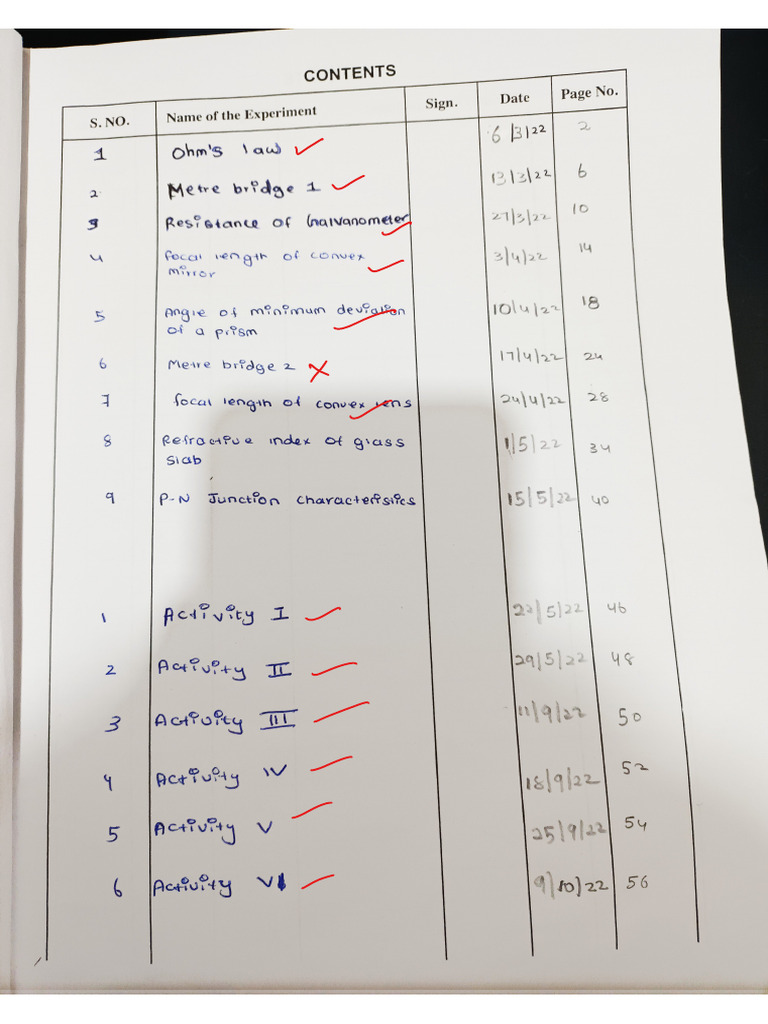 CONTENTS
S. NO. Name of the Experiment Sign. Date Page No.
1 Ohm's law 6/3/22 2
2 Metre bridge 1 13/3/22 6
3 Resistance of Galvanometer 27/3/22 10
4 focal length of convex 3/4/22 14
mirror
5 Angle of minimum deviation 10/4/22 18
of a prism
6 Metre bridge 2 17/4/22 24
7 focal length of convex lens 24/4/22 28
8 Refractive index of glass 1/5/22 34
slab
9 P-N Junction characteristics 15/5/22 40
1 Activity I 22/5/22 46
2 Activity II 29/5/22 48
3 Activity III 11/9/22 50
4 Activity IV 18/9/22 52
5 Activity V 25/9/22 54
6 Activity VI 9/10/22 56